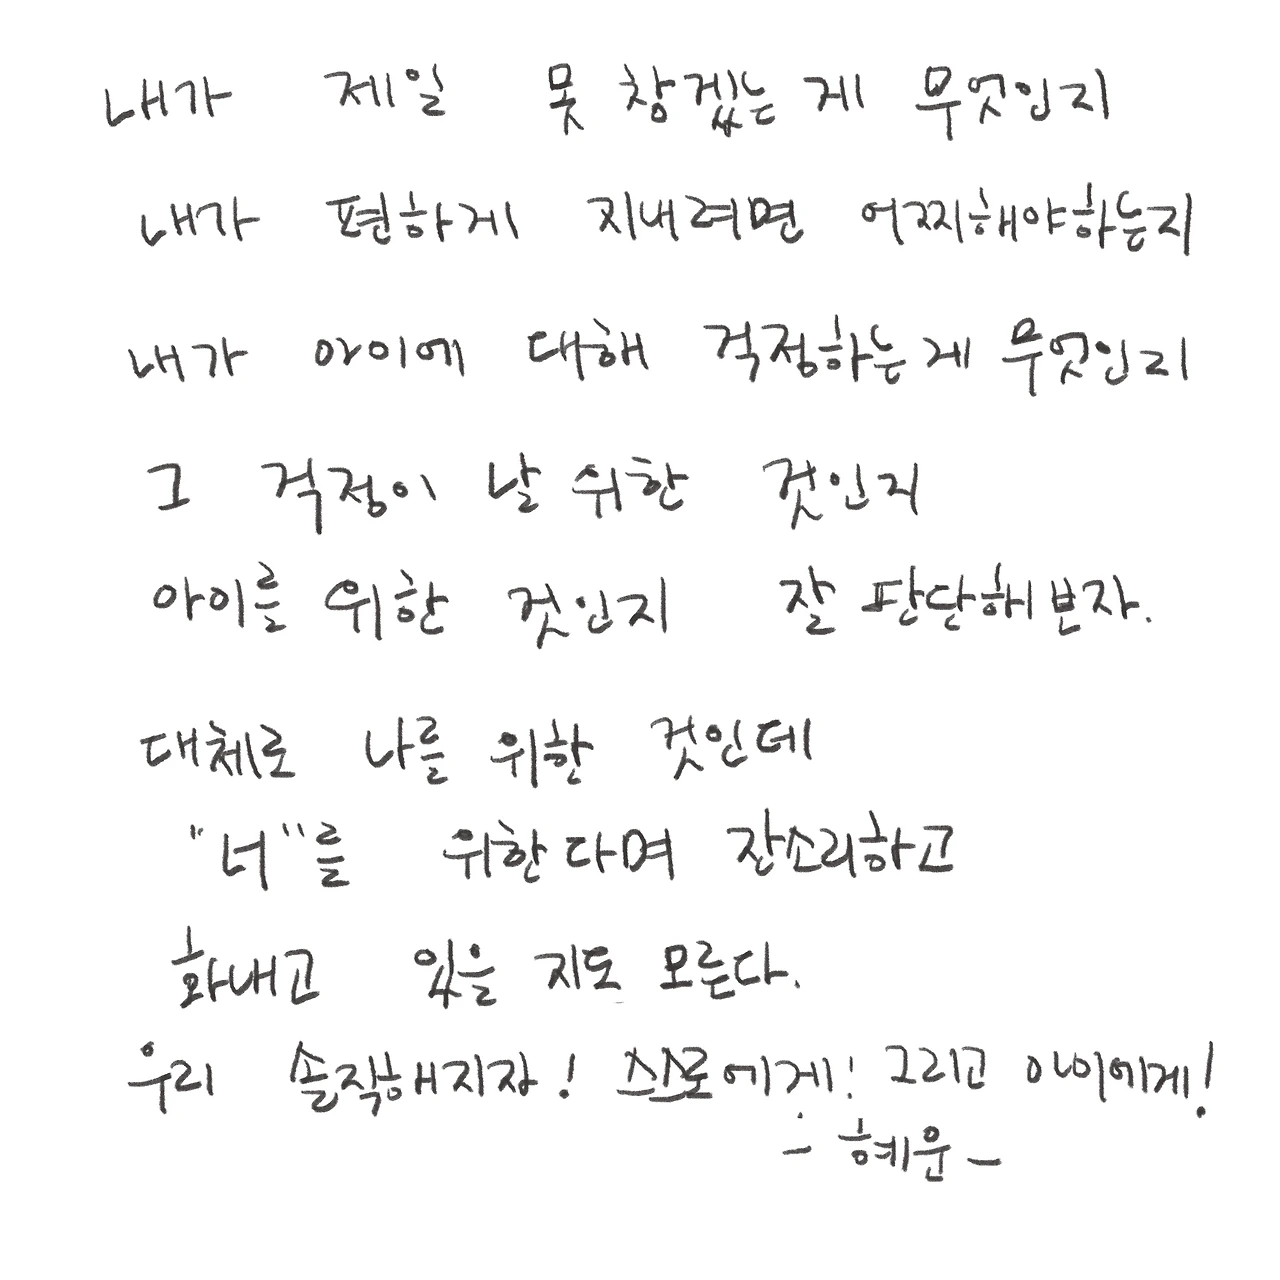 내가 제일 못 참겠는 게 무엇인지
내가 편하게 지내려면 어찌해야하는지
내가 아이에 대해 걱정하는게 무엇인지
그 걱정이 날 위한 것인지
아이를 위한 것인지 잘 판단해보자.
대체로 나를 위한 것인데
"너"를 위한다며 잔소리하고
화내고 있을 지도 모른다.
우리 솔직해지자! 스스로에게! 그리고 아이에게!
- 혜운 -